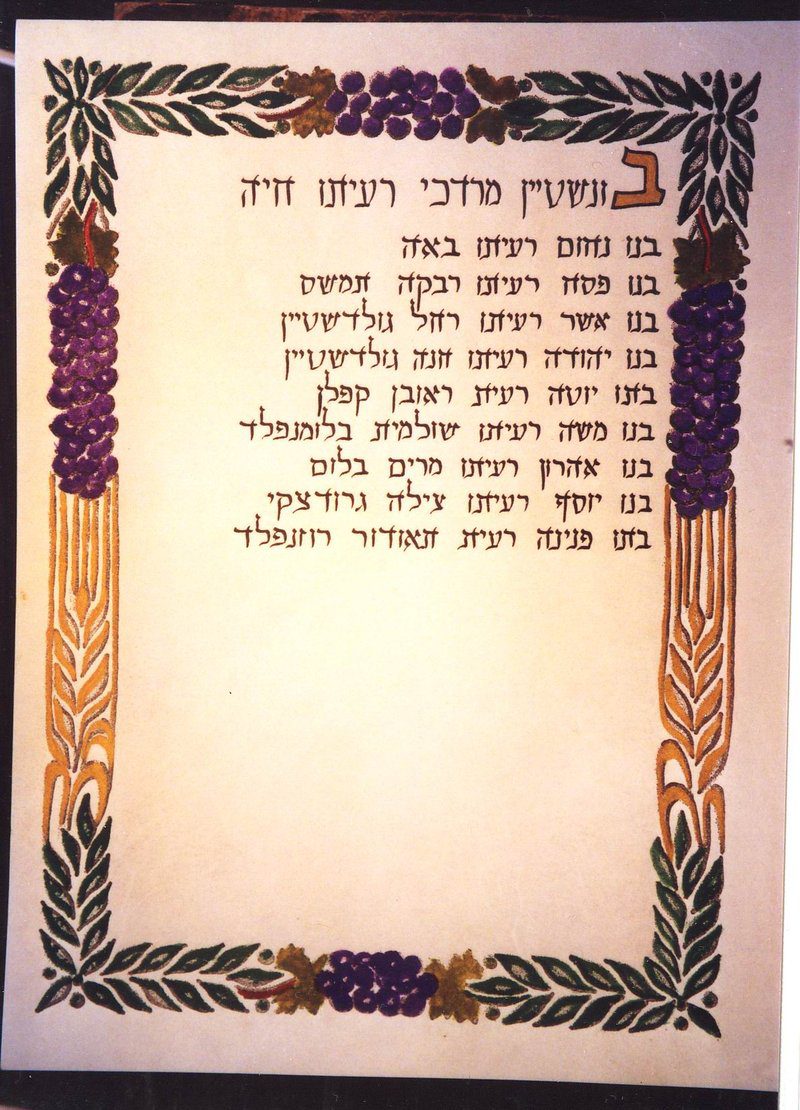 בונשטיין מרדכי רעיתו חיה
בנו נחום רעיתו באה
בנו פסח רעיתו רבקה תמשס
בנו אשר רעיתו רחל גולדשטיין
בנו יהודה רעיתו חנה גולדשטיין
בתו יוטה רעית ראובן קפלן
בנו משה רעיתו שולמית בלומנפלד
בנו אהרון רעיתו מרים בלום
בנו יוסף רעיתו צילה גרודצקי
בתו פנינה רעית תאודור רוזנפלד